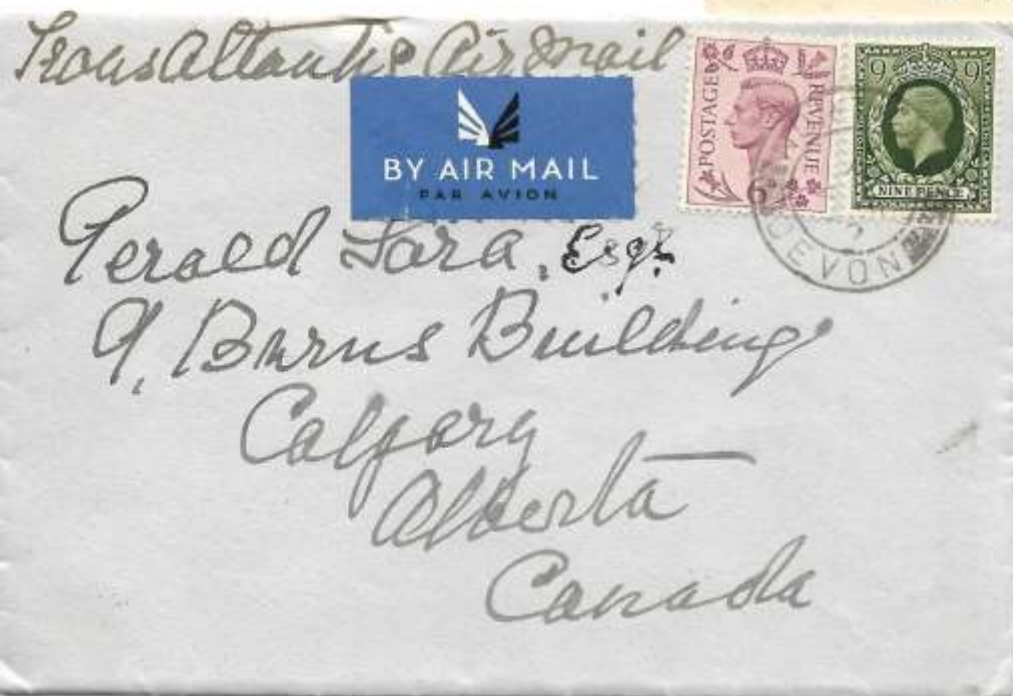 Trans Altantic Air Mail
BY AIR MAIL
PAR AVION
POSTAGE REVENUE
6
9 9
NINE PENCE
DEVON
Gerald Lara, Esq.
9, Burns Building
Calgary
Alberta
Canada